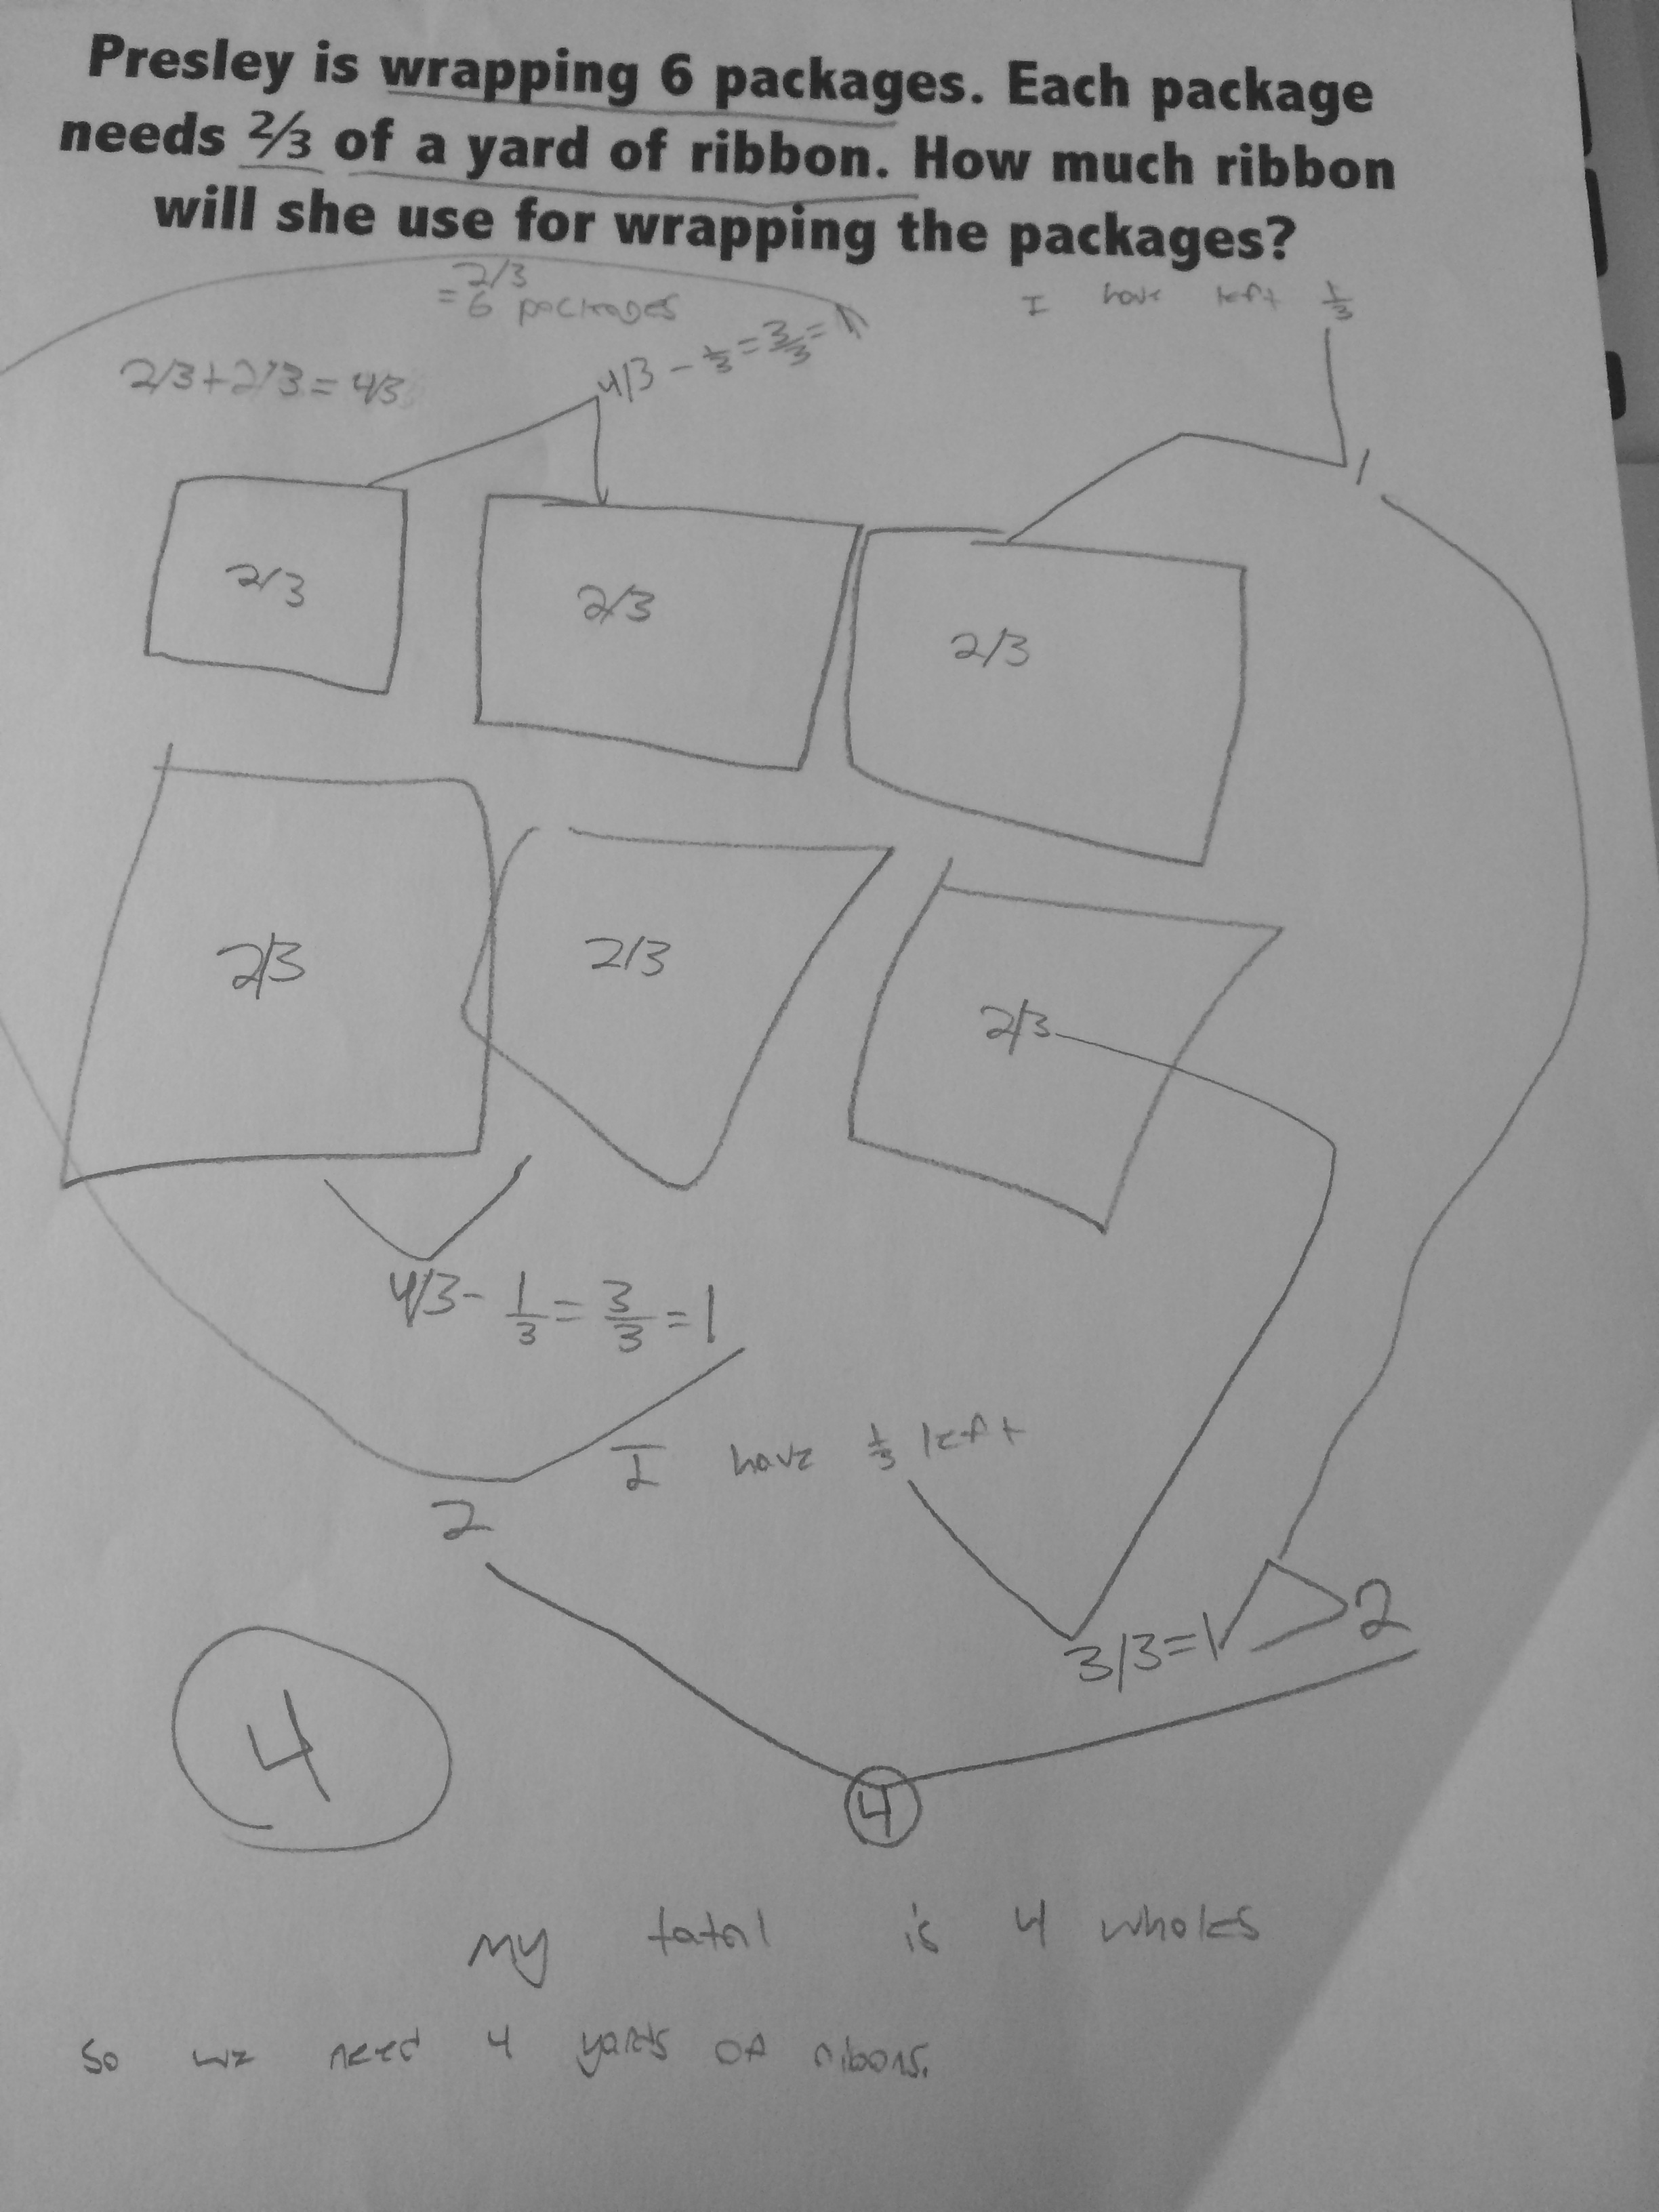 Presley is wrapping 6 packages. Each package
needs 2/3 of a yard of ribbon. How much ribbon
will she use for wrapping the packages?
= 2/3
6 packages
I have left 1/3
2/3+2/3=4/3
4/3 - 1/3 = 3/3 = 1
1
2/3
2/3
2/3
2/3
2/3
2/3
4/3 - 1/3 = 3/3 = 1
I have 1/3 left
2
3/3=1
2
4
4
my tatal is 4 wholes
so we need 4 yards of ribons.